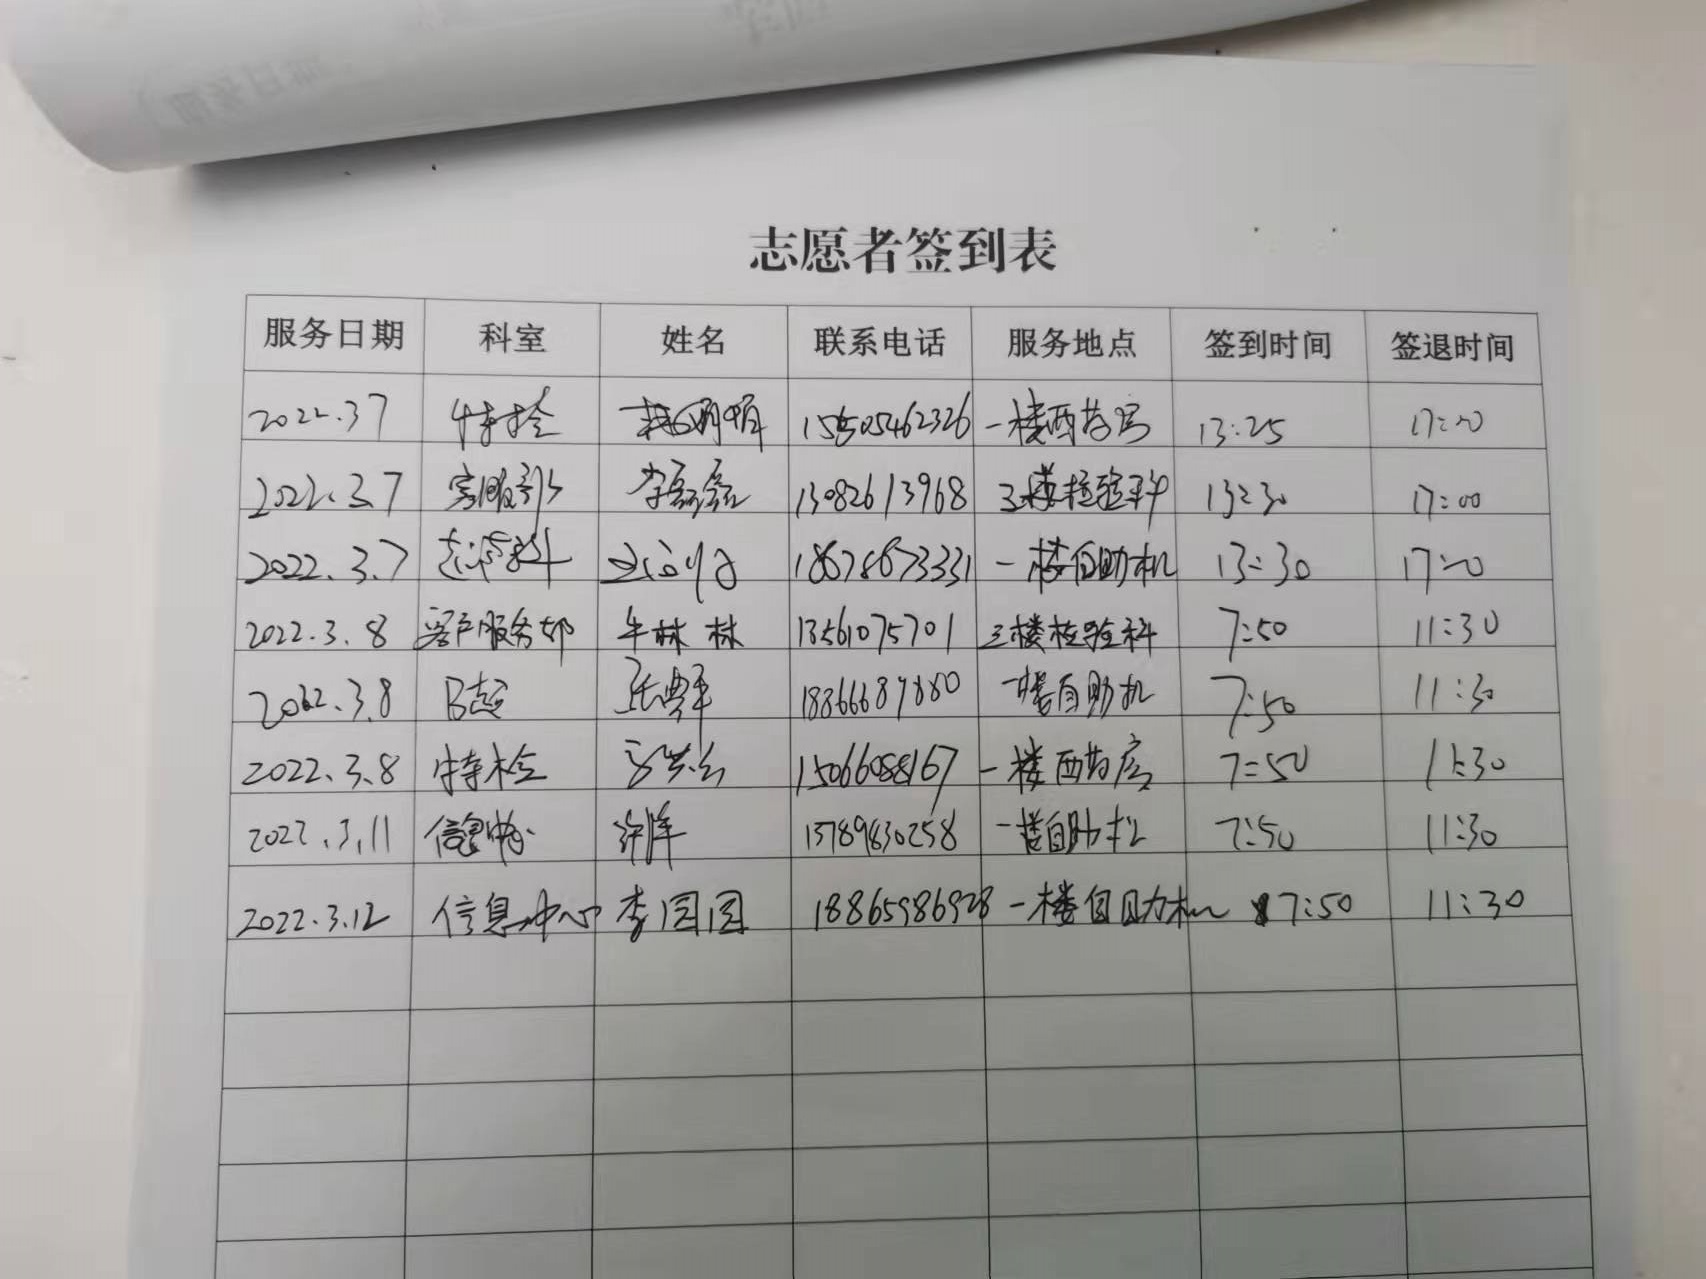 志愿者签到表
服务日期 科室 姓名 联系电话 服务地点 签到时间 签退时间
2022.3.7 特检 15505462326 一楼西药房 13:25 17:00
2022.3.7 客服部 李磊磊 13082613968 三楼检验科 13:30 17:00
2022.3.7 18678673331 一楼自助机 13:30 17:00
2022.3.8 客户服务部 牛林林 13561075701 三楼检验科 7:50 11:30
2022.3.8 B超 18366689880 一楼自助机 7:50 11:30
2022.3.8 特检 15066088167 一楼西药房 7:50 11:30
2022.3.11 信息中心 许洋 13789830258 一楼自助机 7:50 11:30
2022.3.12 信息中心 李园园 18865986928 一楼自助机 7:50 11:30